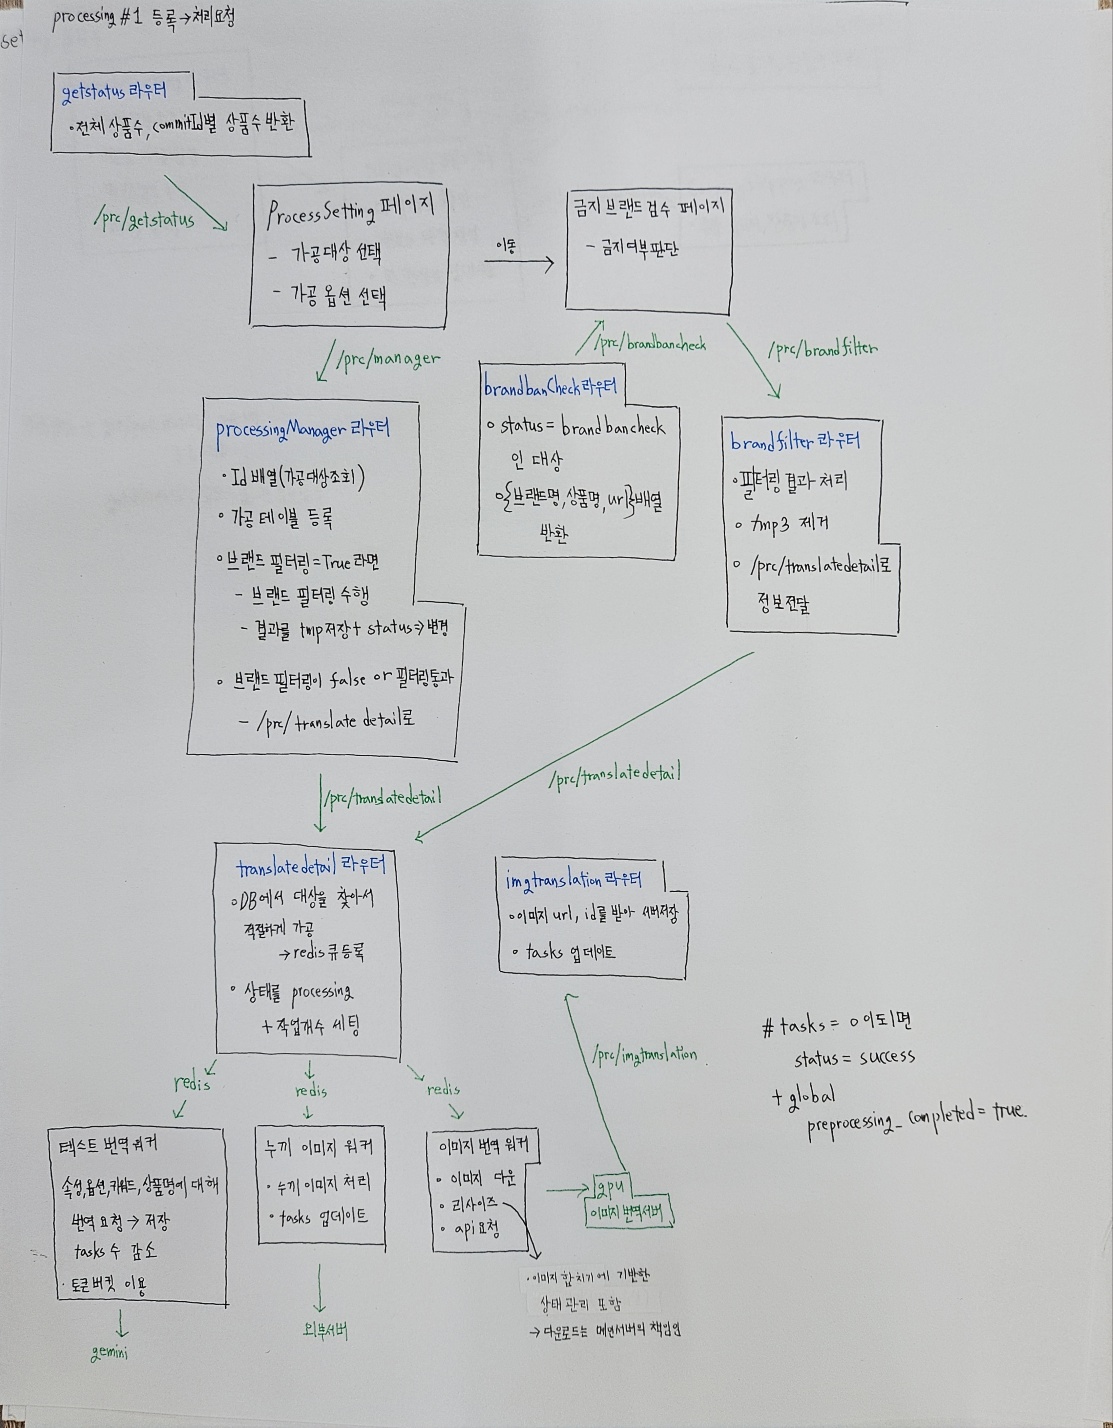 processing #1 등록→처리요청
set
getstatus 라우터
• 전체 상품수, commitId별 상품수 반환
/prc/getstatus
ProcessSetting 페이지
- 가공대상 선택
- 가공 옵션 선택
이동
금지 브랜드 검수 페이지
- 금지여부판단
/prc/manager
/prc/brandbancheck
/prc/brandfilter
processingManager 라우터
• Id 배열(가공대상조회)
• 가공 테이블 등록
• 브랜드 필터링=True라면
- 브랜드 필터링 수행
- 결과를 tmp저장+ status⇒변경
• 브랜드 필터링이 false or 필터링통과
- /prc/translate detail로
brandbanCheck라우터
• status= brandbancheck
인 대상
•{브랜드명,상품명,url}배열
반환
brandfilter 라우터
• 필터링 결과 처리
• tmp3 제거
• /prc/translatedetail로
정보전달
/prc/translatedetail
/prc/translatedetail
translatedetail 라우터
• DB에서 대상을 찾아서
적절하게 가공
→redis큐등록
• 상태를 processing
+작업개수 세팅
imgtranslation 라우터
•이미지 url, id를 받아 서버저장
• tasks 업데이트
/prc/imgtranslation
# tasks = 0 이되면
status = success
+ global
preprocessing_completed = true.
redis
redis
redis
텍스트 번역워커
속성,옵션,키워드,상품명에 대해
번역 요청 → 저장
tasks 수 감소
· 토큰버킷 이용
gemini
누끼 이미지 워커
• 누끼 이미지 처리
• tasks 업데이트
외부서버
이미지 번역 워커
• 이미지 다운
• 리사이즈
• api요청
gpu
이미지 번역서버
· 이미지 합치기에 기반한
상태 관리 포함
→ 다운로드는 메인서버의 책임인